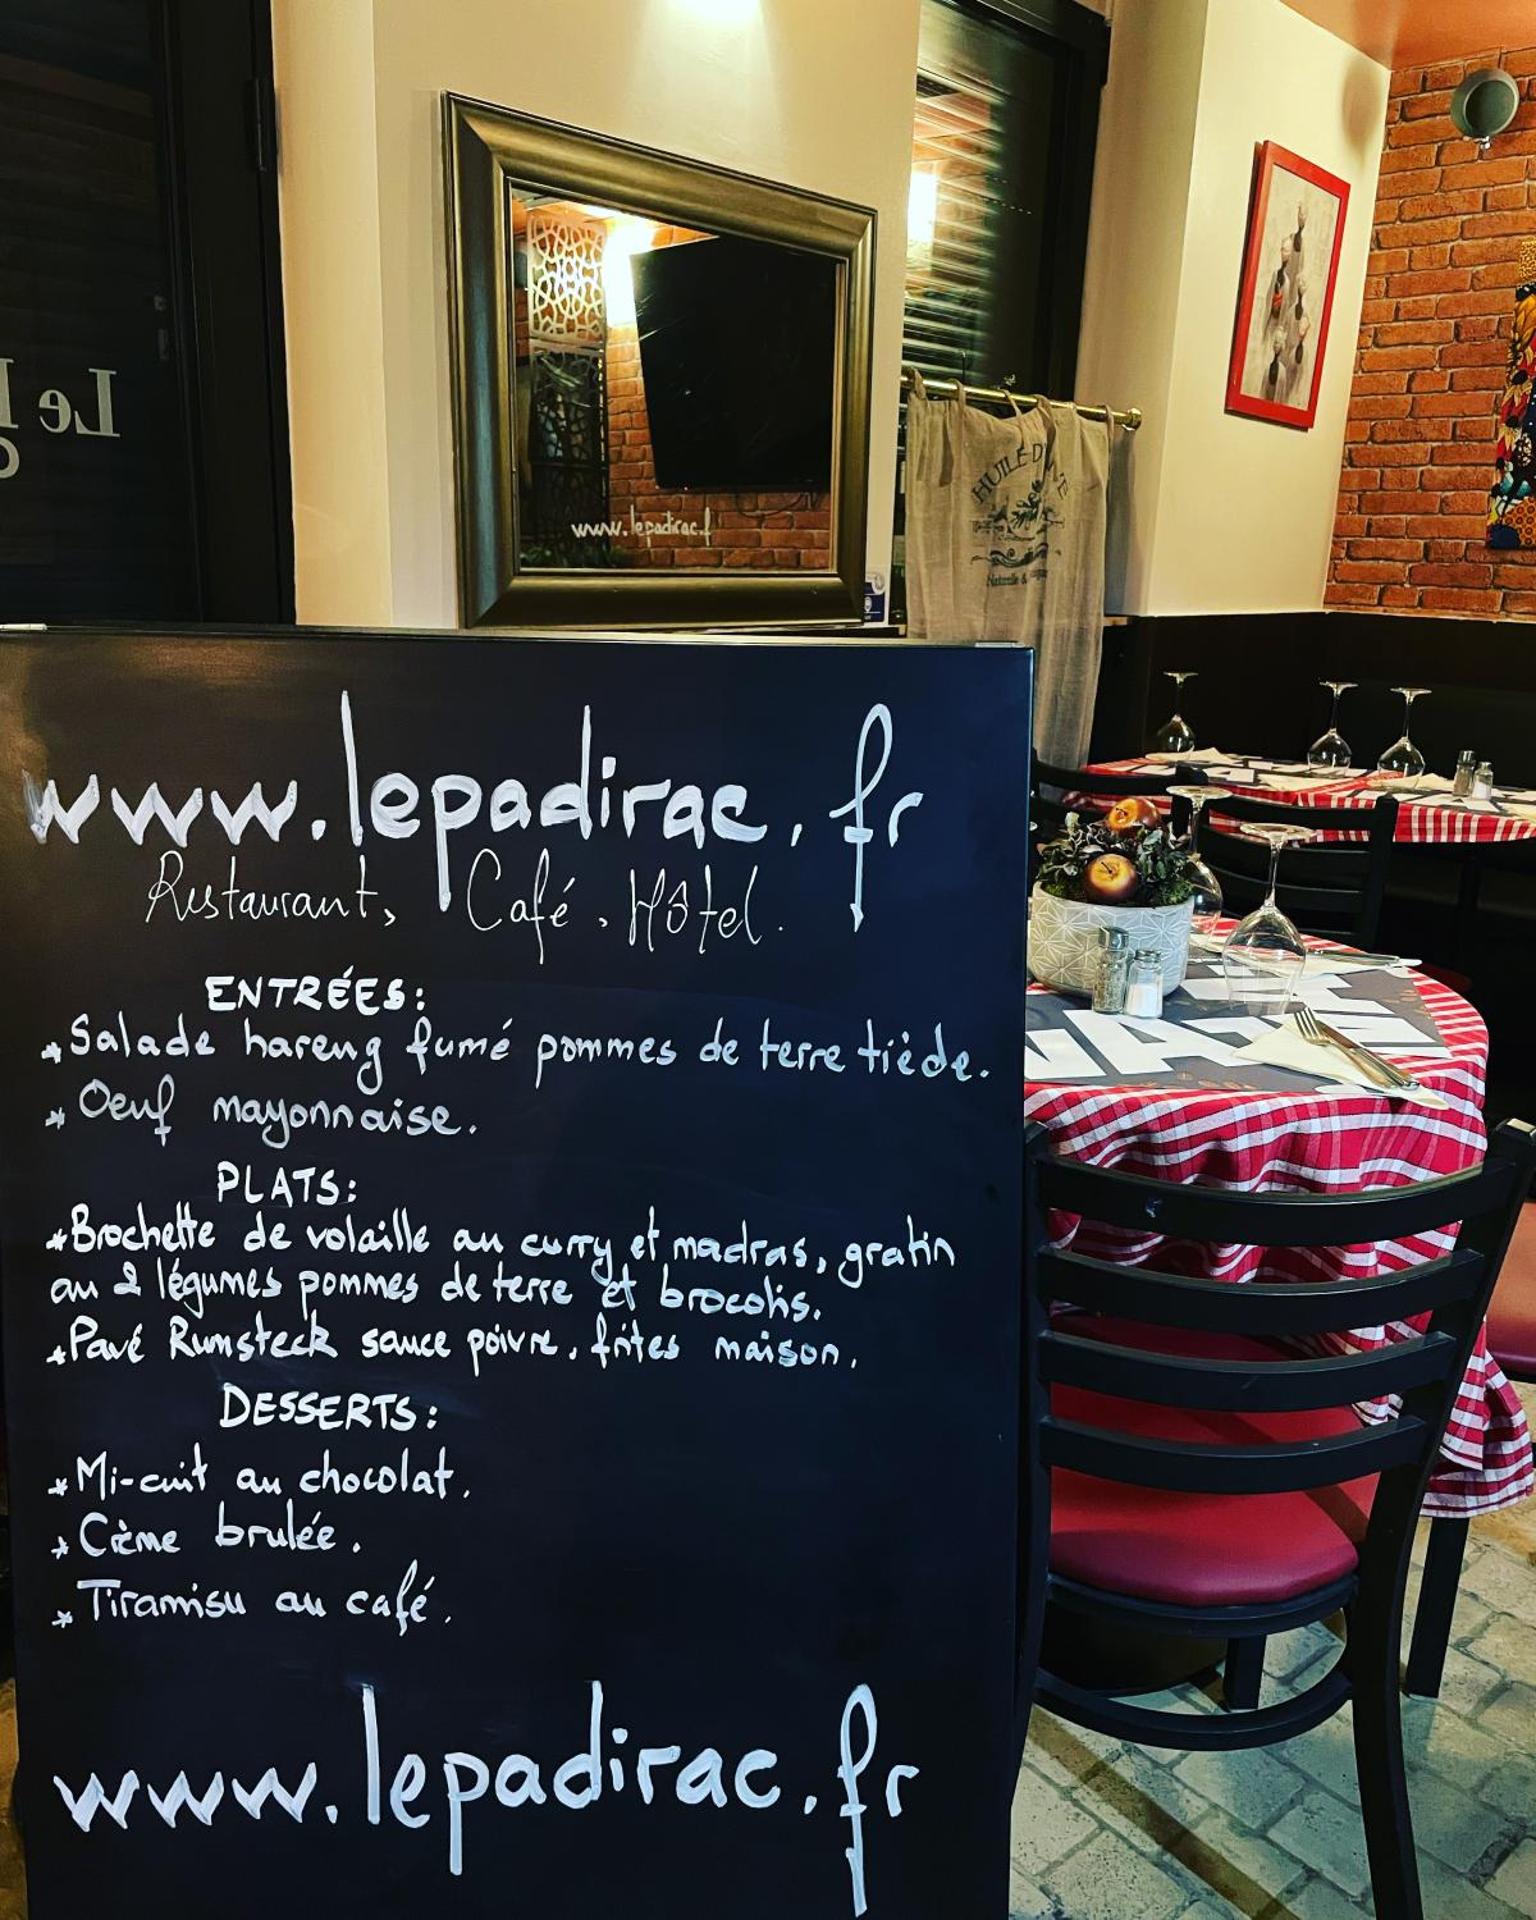 Le
www.lepadirac.f
HUILE D'
Naturelle &
www.lepadirac.fr
Restaurant, Café, Hôtel.
ENTRÉES:
*Salade hareng fumé pommes de terre tiède.
*Oeuf mayonnaise.
PLATS:
*Brochette de volaille au curry et madras, gratin
au 2 légumes pommes de terre et brocolis.
*Pavé Rumsteck sauce poivre, frites maison.
DESSERTS:
*Mi-cuit au chocolat.
*Crème brulée.
*Tiramisu au café.
www.lepadirac.fr